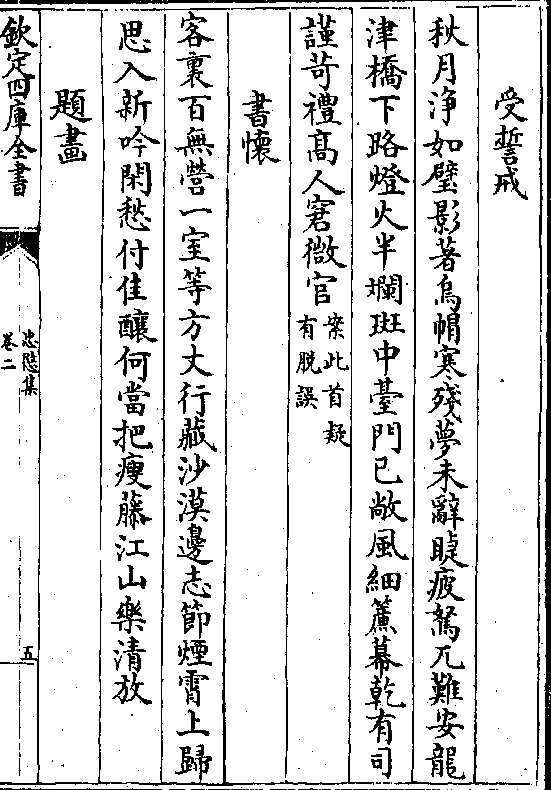 受誓戒
秋月淨如璧影著烏帽寒殘夢未辭睫疲駑兀難安龍
津橋下路燈火半斕斑中臺門已敞風細簾幕乾有司
謹苛禮高人窘微官案此首疑
有脱誤
書懷
客裏百無營一室等方丈行藏沙漠邊志節煙霄上歸
思入新吟閑愁付佳釀何當把瘦藤江山樂清放
題畫
欽定四庫全書
忠隱集
卷二
五